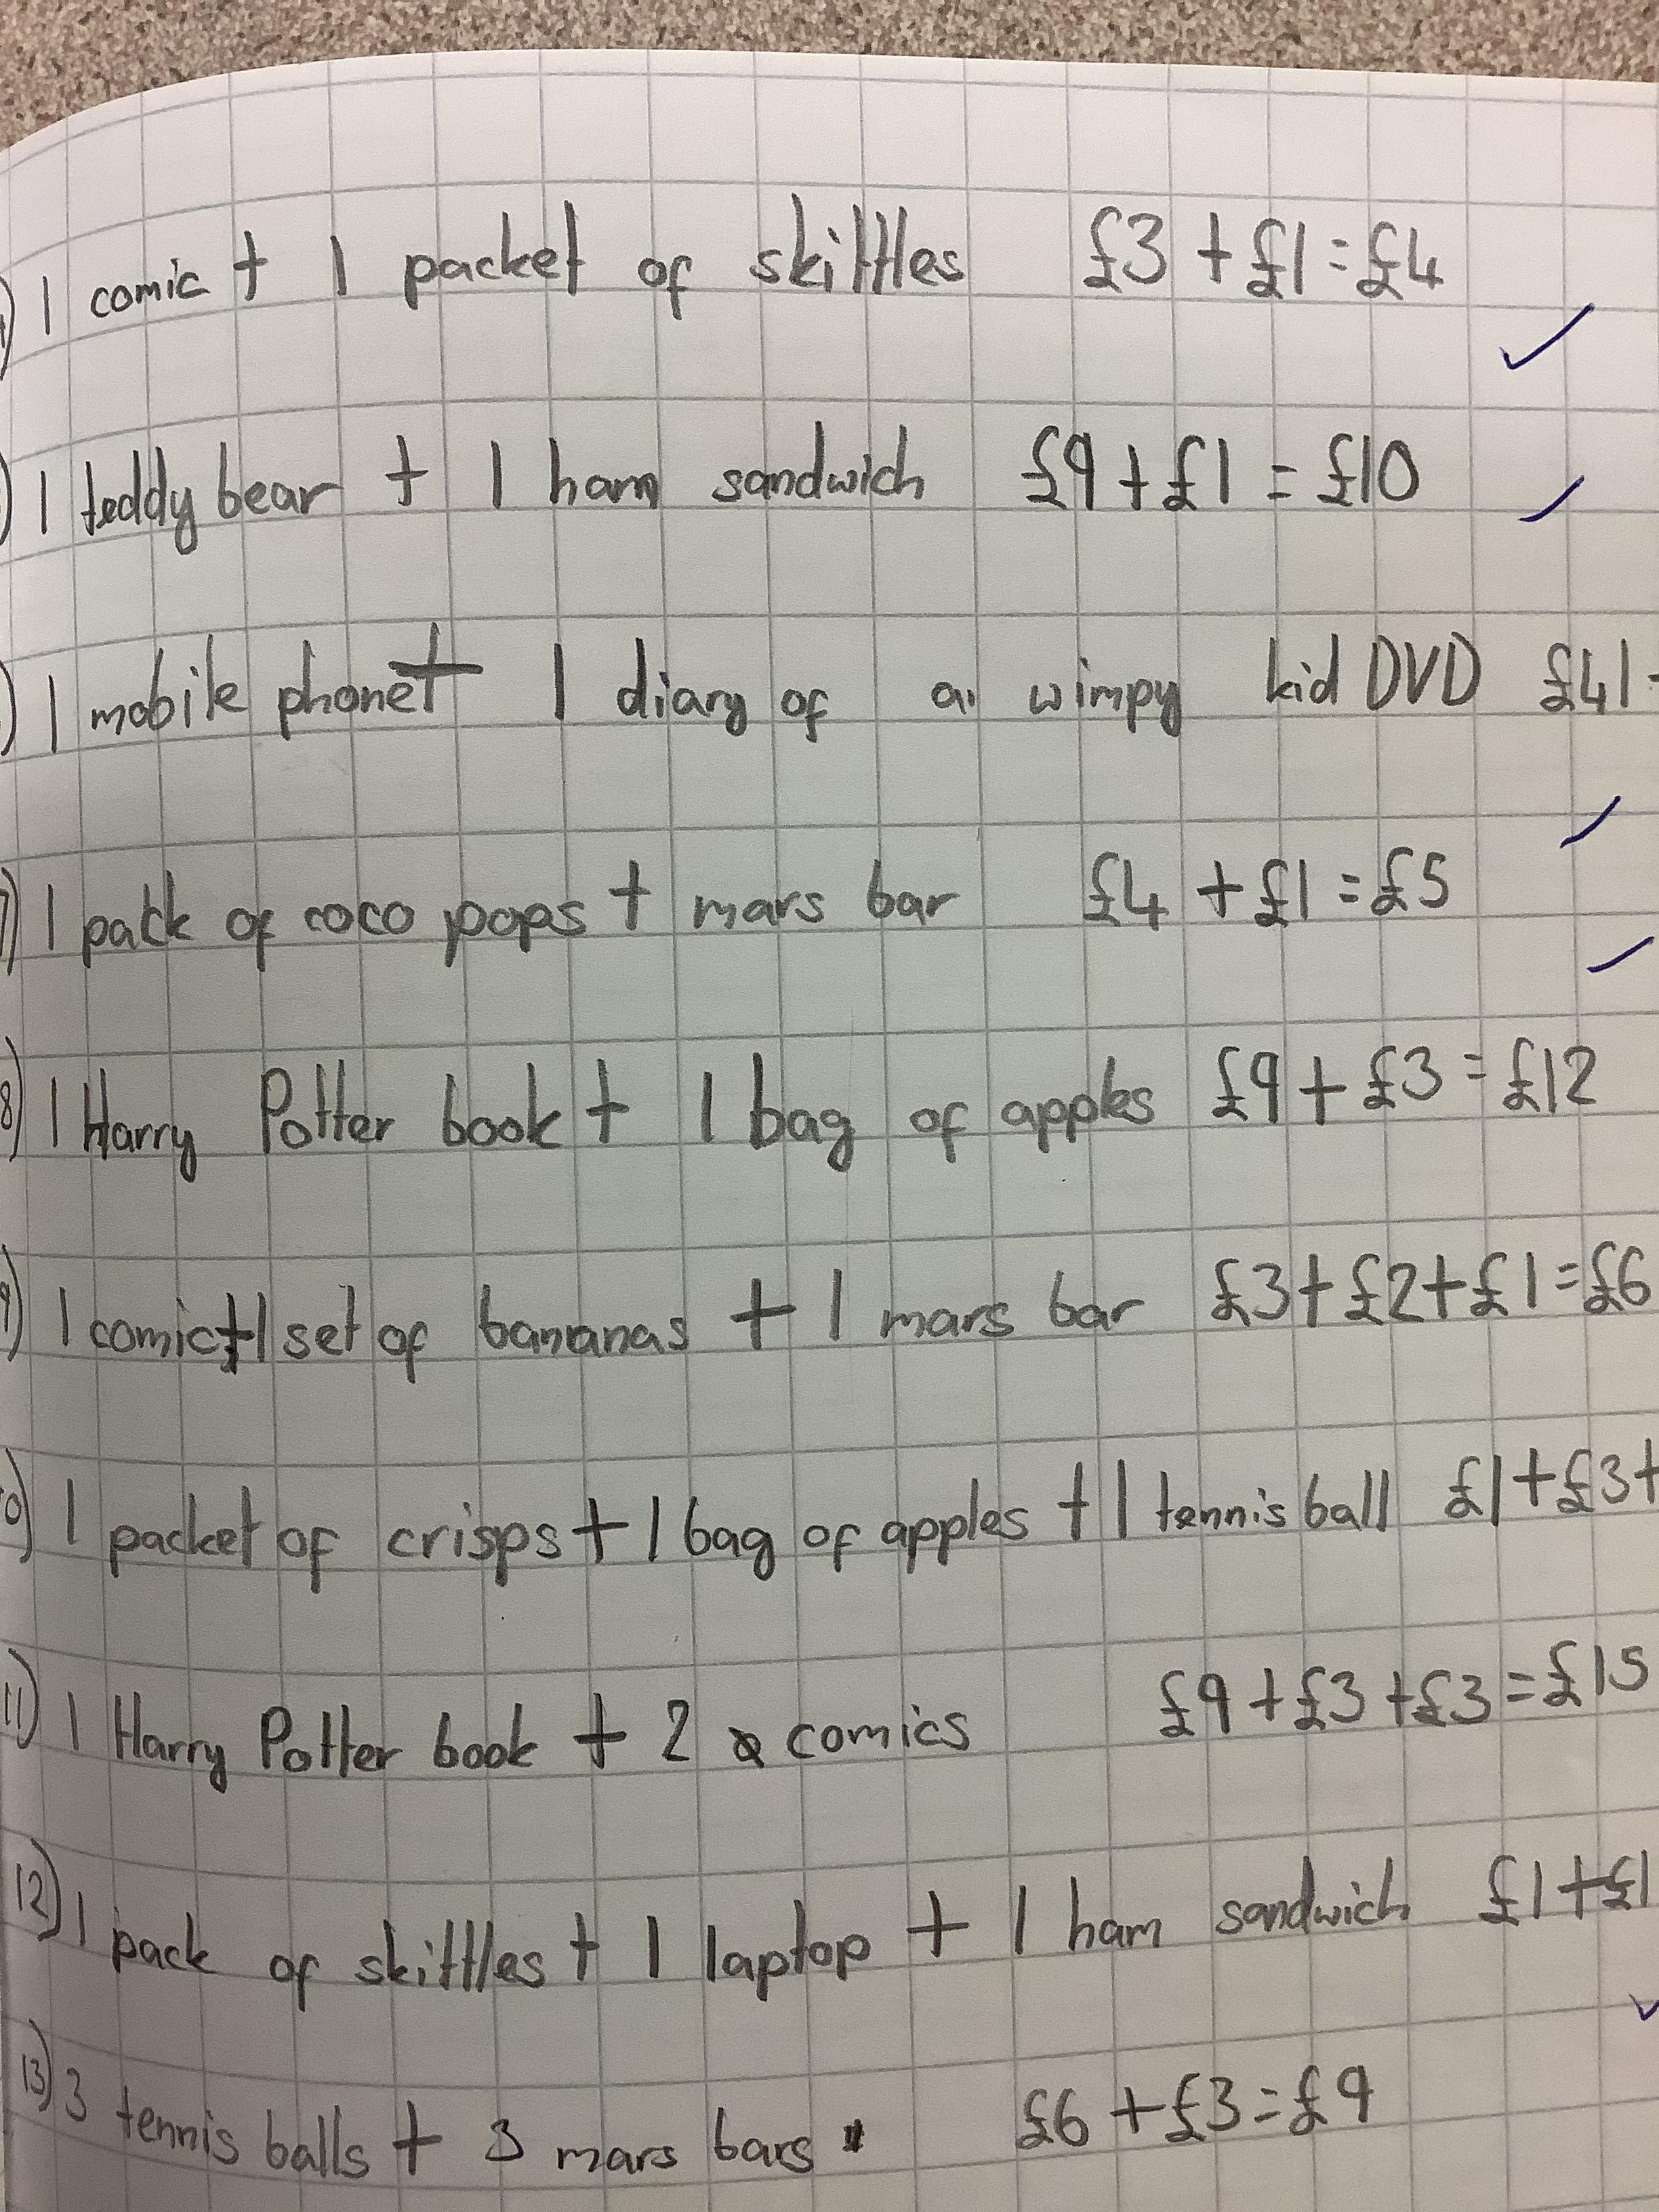 1 comic + 1 packet of skittles £3 + £1 = £4
1 teddy bear + 1 ham sandwich £9 + £1 = £10
1 mobile phone + 1 diary of a wimpy kid DVD £41
7) 1 pack of coco pops + mars bar £4 + £1 = £5
8) 1 Harry Potter book + 1 bag of apples £9 + £3 = £12
9) 1 comic + 1 set of bananas + 1 mars bar £3 + £2 + £1 = £6
10) 1 packet of crisps + 1 bag of apples + 1 tennis ball £1 + £3 +
11) 1 Harry Potter book + 2 comics £9 + £3 + £3 = £15
12) 1 pack of skittles + 1 laptop + 1 ham sandwich £1 + £1
13) 3 tennis balls + 3 mars bars £6 + £3 = £9